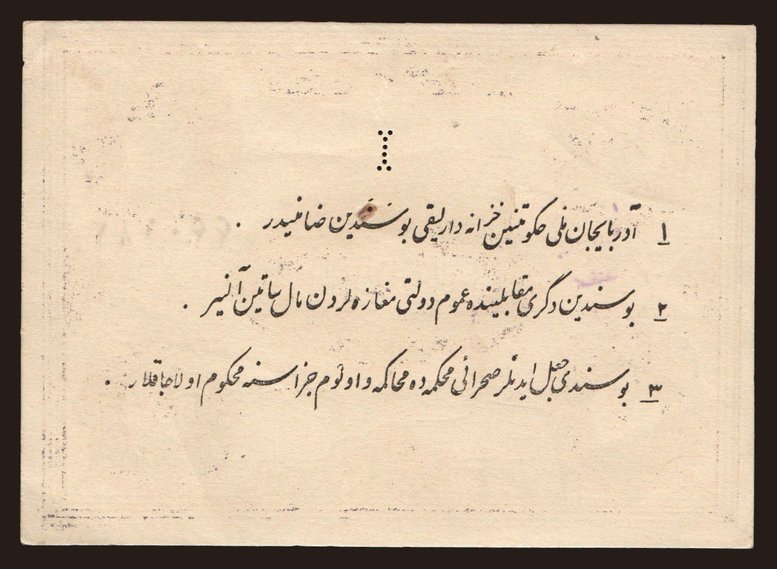 ۱ آذربایجان ملی حکومتینین خزانه دارلیقی بو سندین ضامنیدر .
۲ بو سندین دگری مقابلینده عموم دولتی مغازه لردن مال ساتین آنیر .
۳ بو سندی جعل ایدنلر صحرائی محکمه ده محاکمه و اولوم جزاسنه محکوم اولاجاقلار .